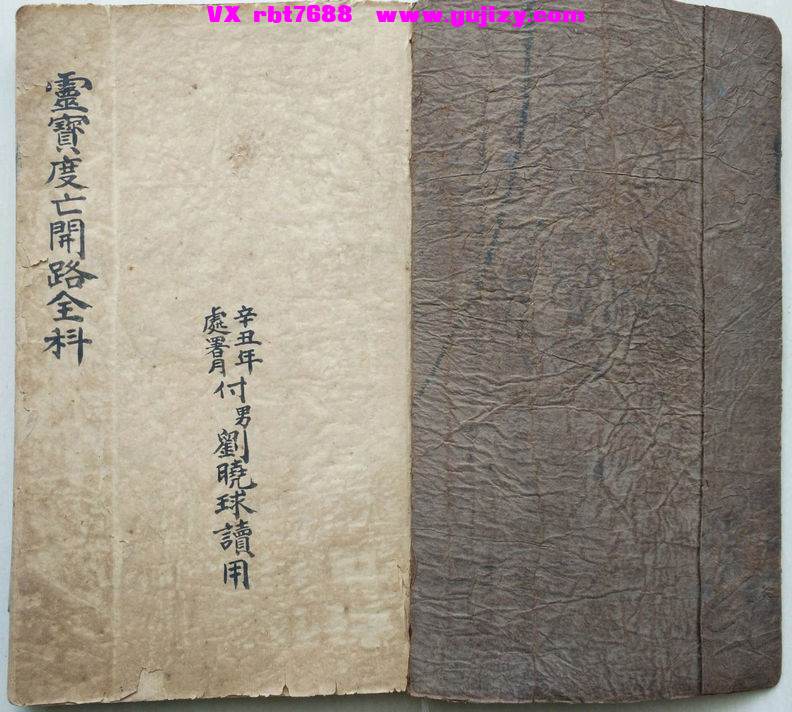 VX rbt7688 www.gujizy.com
靈寶度亡開路全科
辛丑年
處署月
付男劉曉球讀用